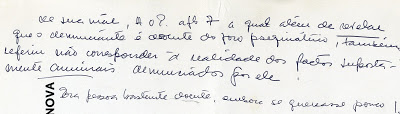 de sua mãe, a of. afls 7 a qual além de revelar
que o denunciante é doente do foro psiquiátrico, também
referiu não corresponder à realidade dos factos suposta-
mente criminais denunciados por ele!
Era pessoa bastante doente, embora se queixasse pouco!
NOVA